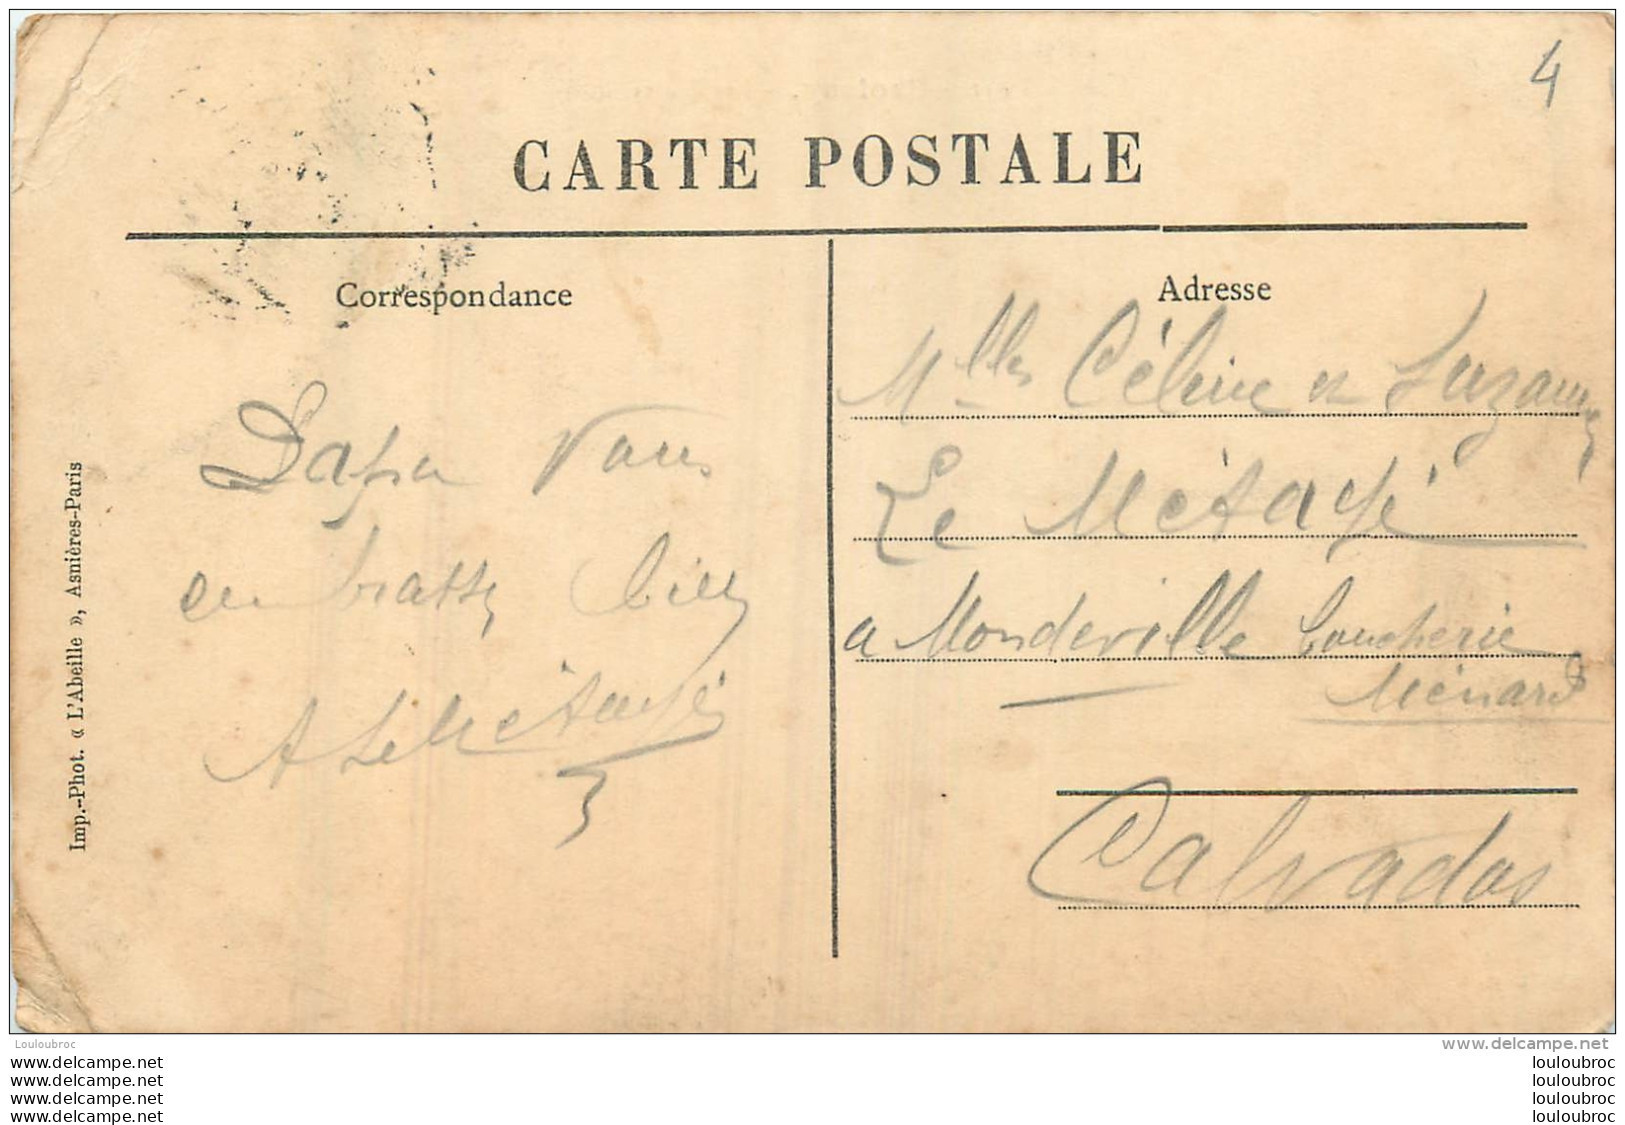 4
CARTE POSTALE
Correspondance
Adresse
Papa vous
embrasse bien
A Le Métayé
Mlles Céline et Suzanne
Le Métayé
a Mondeville boucherie
Ménard
Calvados
Imp.-Phot. « L'Abeille », Asnières-Paris
Louloubroc
www.delcampe.net
www.delcampe.net
www.delcampe.net
www.delcampe.net
www.delcampe.net
louloubroc
louloubroc
louloubroc
louloubroc